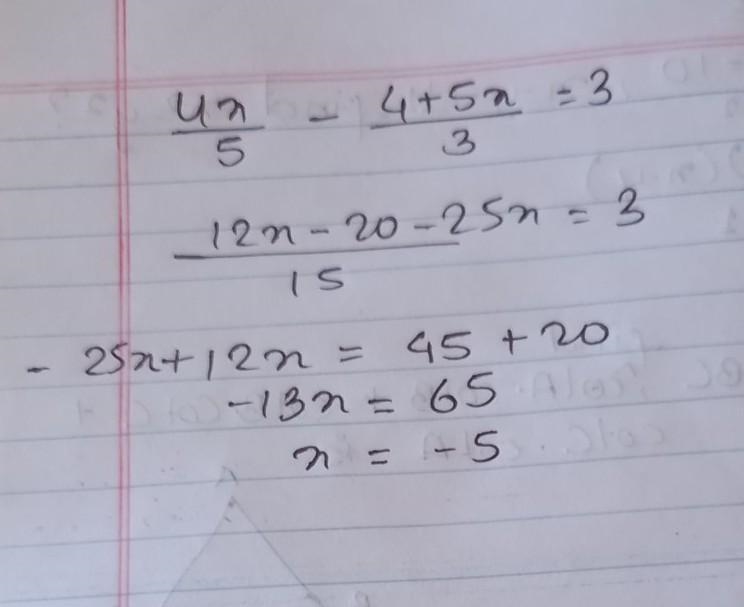 4x/5 - 4+5x/3 = 3
12x - 20 - 25x/15 = 3
- 25x + 12x = 45 + 20
-13x = 65
x = -5